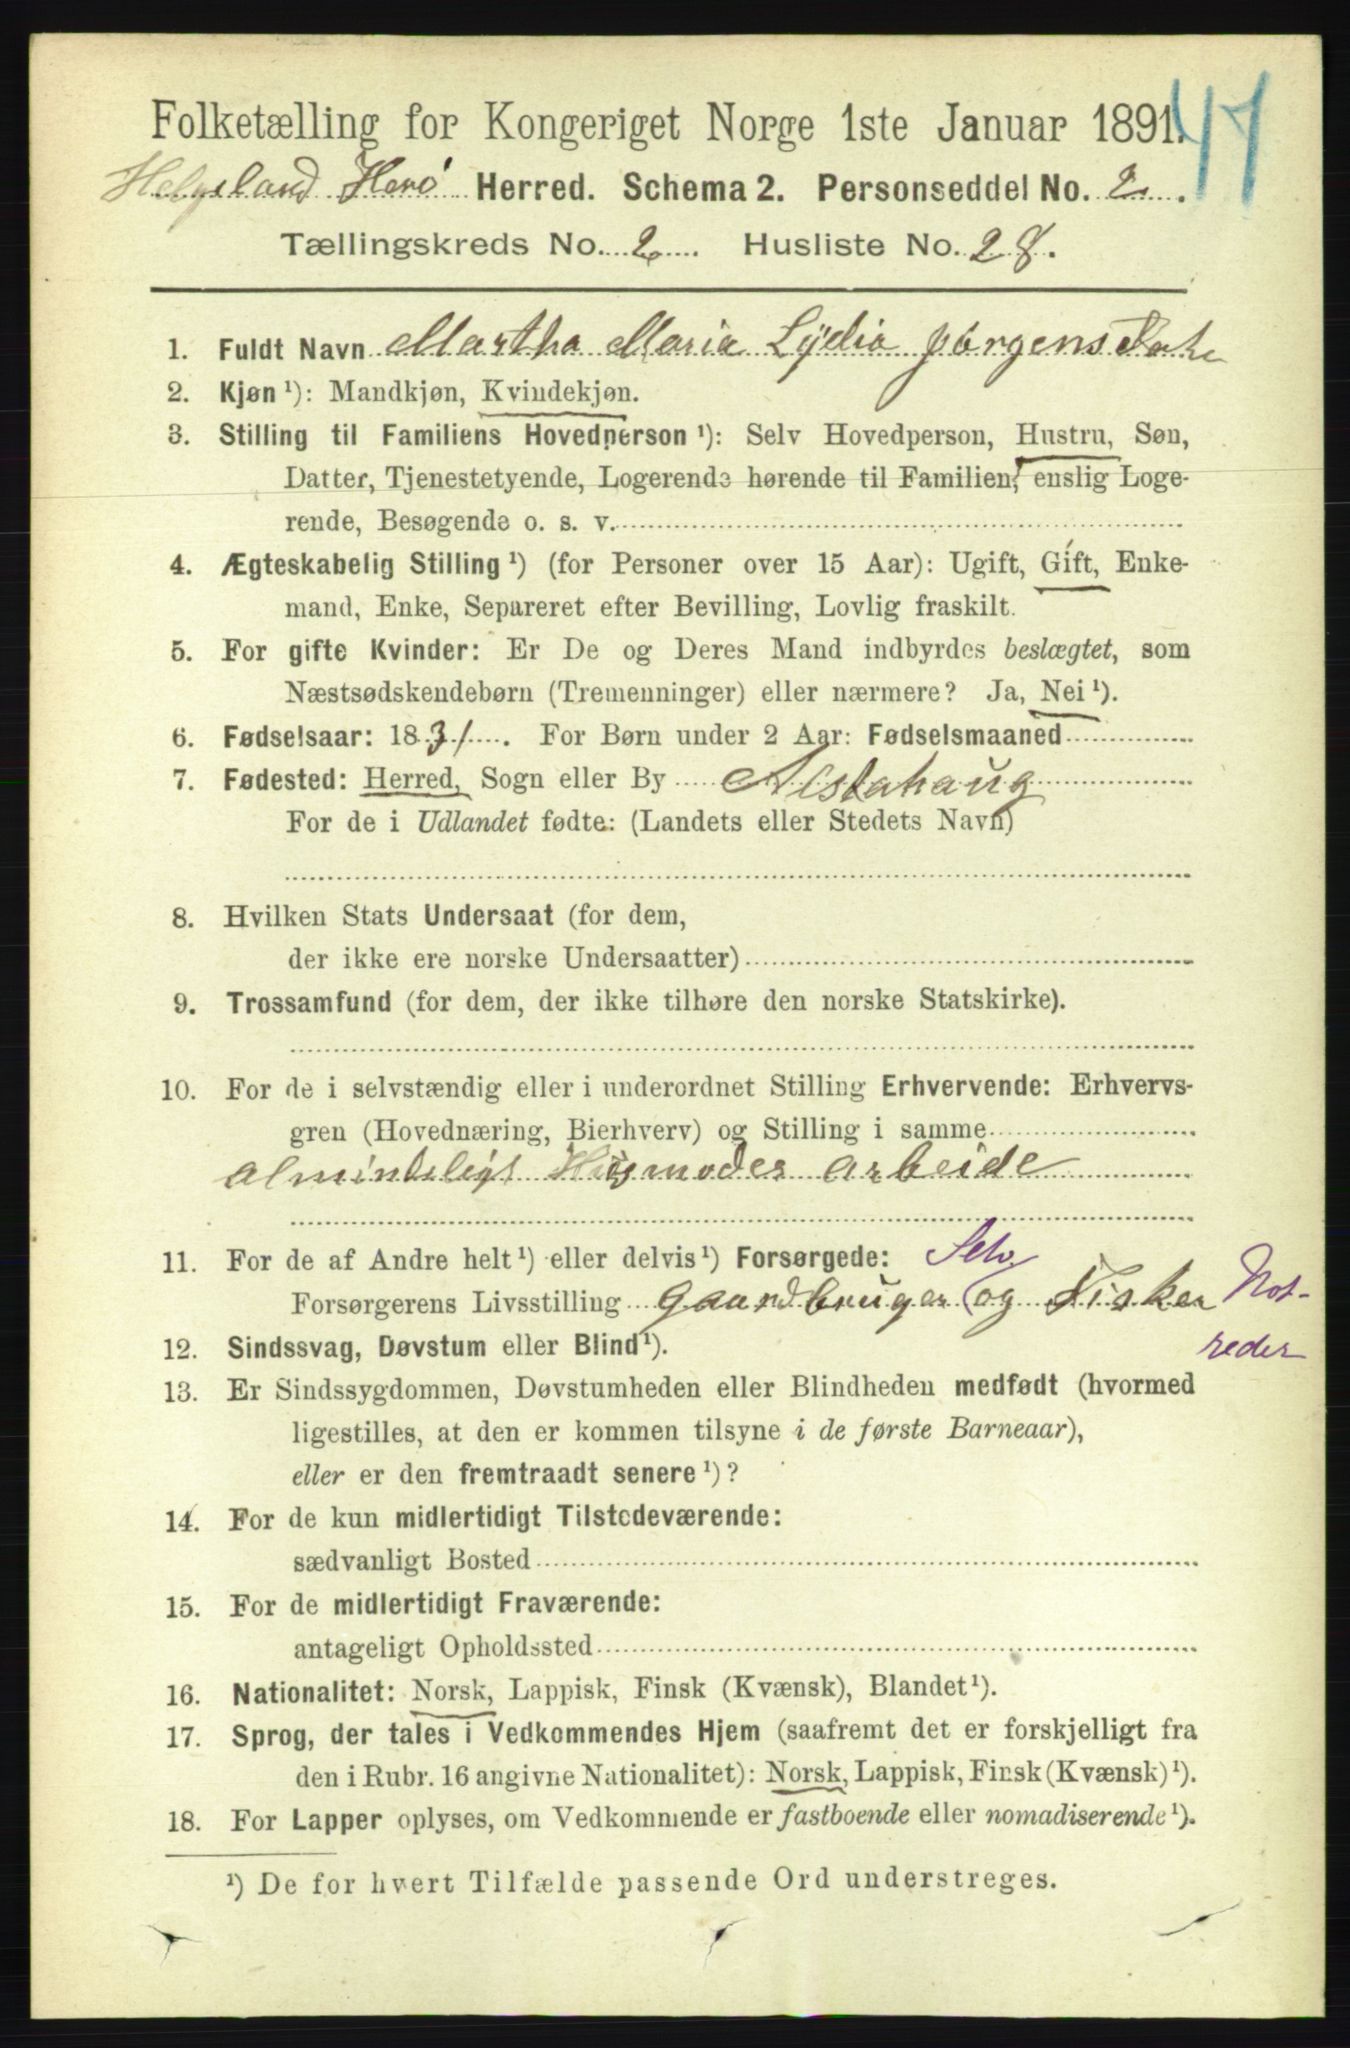 Folketælling for Kongeriget Norge 1ste Januar 1891.
47
Helgeland Herø Herred. Schema 2. Personseddel No. 2.
Tællingskreds No. 2. Husliste No. 28.
1. Fuldt Navn Martha Maria Lydia Jørgens Dater
2. Kjøn ¹): Mandkjøn, Kvindekjøn.
3. Stilling til Familiens Hovedperson ¹): Selv Hovedperson, Hustru, Søn,
Datter, Tjenestetyende, Logerende hørende til Familien, enslig Loge-
rende, Besøgende o. s. v.
4. Ægteskabelig Stilling ¹) (for Personer over 15 Aar): Ugift, Gift, Enke-
mand, Enke, Separeret efter Bevilling, Lovlig fraskilt.
5. For gifte Kvinder: Er De og Deres Mand indbyrdes beslægtet, som
Næstsødskendebørn (Tremenninger) eller nærmere? Ja, Nei ¹).
6. Fødselsaar: 1831. For Børn under 2 Aar: Fødselsmaaned
7. Fødested: Herred, Sogn eller By Alstahaug
For de i Udlandet fødte: (Landets eller Stedets Navn)
8. Hvilken Stats Undersaat (for dem,
der ikke ere norske Undersaatter)
9. Trossamfund (for dem, der ikke tilhøre den norske Statskirke).
10. For de i selvstændig eller i underordnet Stilling Erhvervende: Erhvervs-
gren (Hovednæring, Bierhverv) og Stilling i samme
almindeligt Husmoder arbeide
11. For de af Andre helt ¹) eller delvis ¹) Forsørgede: Selv
Forsørgerens Livsstilling Gaardbruger (og Fisker Not-
reder
12. Sindssvag, Døvstum eller Blind ¹).
13. Er Sindssygdommen, Døvstumheden eller Blindheden medfødt (hvormed
ligestilles, at den er kommen tilsyne i de første Barneaar),
eller er den fremtraadt senere ¹)?
14. For de kun midlertidigt Tilstedeværende:
sædvanligt Bosted
15. For de midlertidigt Fraværende:
antageligt Opholdssted
16. Nationalitet: Norsk, Lappisk, Finsk (Kvænsk), Blandet ¹).
17. Sprog, der tales i Vedkommendes Hjem (saafremt det er forskjelligt fra
den i Rubr. 16 angivne Nationalitet): Norsk, Lappisk, Finsk (Kvænsk) ¹).
18. For Lapper oplyses, om Vedkommende er fastboende eller nomadiserende ¹).
¹) De for hvert Tilfælde passende Ord understreges.